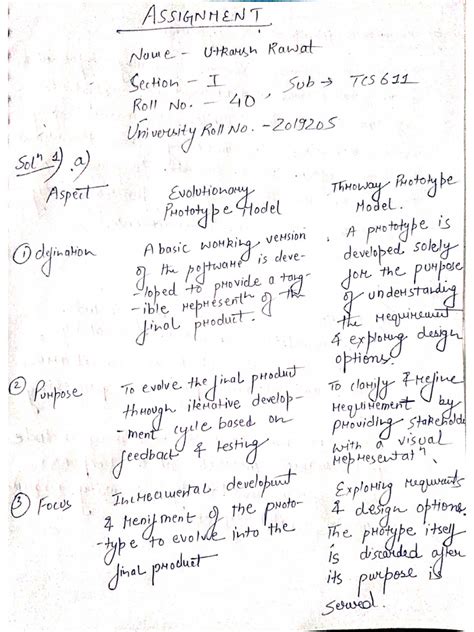 ASSIGNMENT
Name - Utkarsh Rawat
Section - I
Sub → TCS611
Roll No. - 40
University Roll No. - 2019205
Solⁿ 1) a)
Aspect
Evolutionary
Prototype Model
Throway Prototype
Model.
① definition
A basic working version
of the software is deve-
-loped to provide a tang-
-ible representⁿ of the
final product.
A prototype is
developed solely
for the purpose
of understanding
the requirement
& exploring design
options.
② Purpose
To evolve the final product
through iterative develop-
-ment cycle based on
feedback & testing
To clarify & refine
requirement by
providing stakeholde
with a visual
representatⁿ.
③ Focus
Incremental developmt
& refinment of the proto-
-type to evolve into the
final product
Exploring requirments
& design options.
The protype itself
is discarded after
its purpose is
served.